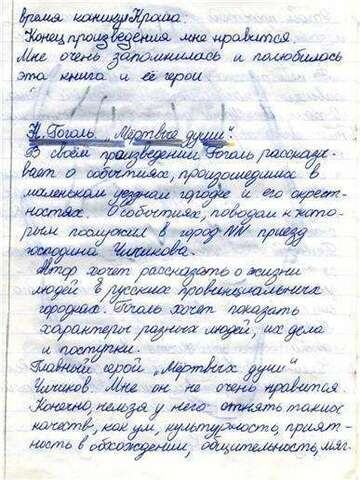 время каникул Кроша.
Конец произведения мне нравится
Мне очень запомнилась и полюбилась
эта книга и её герои
Н. Гоголь „Мёртвые души“.
В своём произведении Гоголь рассказы-
вает о событиях, произошедших в
маленьком уездном городе и его окрест-
ностях. О событиях, поводом к кото-
рым послужил в город NN приезд
господина Чичикова.
Автор хочет рассказать о жизни
людей в русских провинциальных
городках. Гоголь хочет показать
характеры разных людей, их дела
и поступки.
Главный герой „Мертвых души“
Чичиков Мне он не очень нравится
Конечно, нельзя у него отнять таких
качеств, как ум, культурность, прият-
ность в обхождении, общительность, мяг-